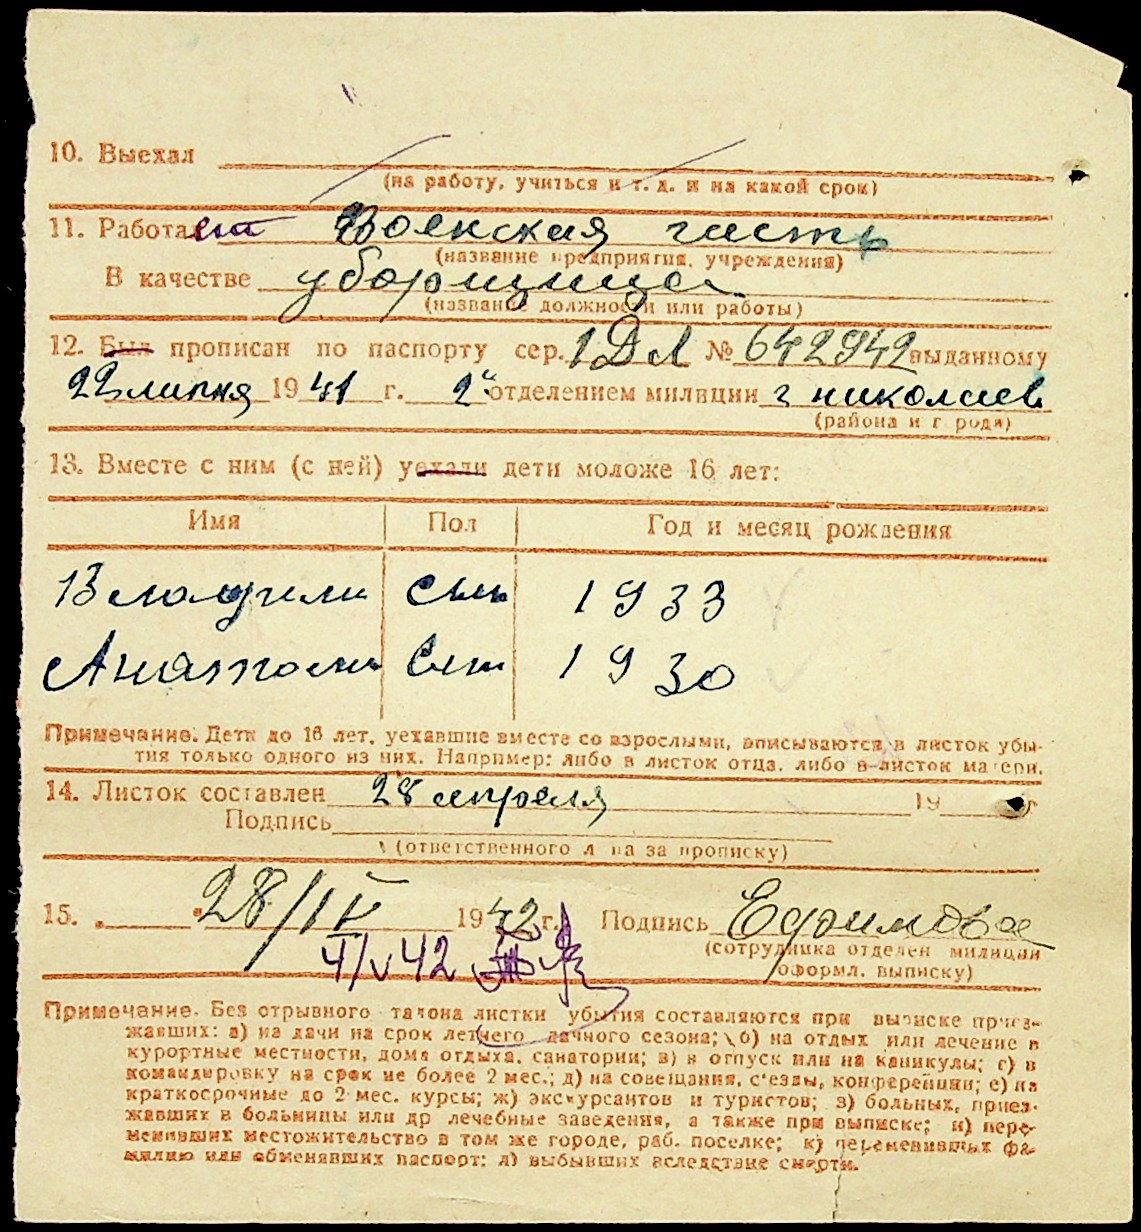 10. Выехал
(на работу, учиться и т. д. и на какой срок)
11. Работает Воинская часть
(название предприятия, учреждения)
В качестве уборщица
(название должности или работы)
12. Был прописан по паспорту сер. 1ДЛ № 642942 выданному
22 липня 1941 г. 2м отделением милиции г николаев
(района и города)
13. Вместе с ним (с ней) уехали дети моложе 16 лет:
Имя Пол Год и месяц рождения
Владимир сын 1933
Анатолий сын 1930
Примечание. Дети до 16 лет, уехавшие вместе со взрослыми, вписываются в листок убы-
тия только одного из них. Например: либо в листок отца, либо в листок матери.
14. Листок составлен 28 апреля 19 г.
Подпись
(ответственного лица за прописку)
15. 28/IV 1942 г. Подпись Ефимова
(сотрудника отделен милиции
оформл. выписку)
4/V 42
Примечание. Без отрывного талона листки убытия составляются при выписке приез-
жавших: а) на дачи на срок летнего дачного сезона; б) на отдых или лечение в
курортные местности, дома отдыха, санатории; в) в отпуск или на каникулы; г) в
командировку на срок не более 2 мес.; д) на совещания, с'езды, конференции; е) на
краткосрочные до 2 мес. курсы; ж) экскурсантов и туристов; з) больных, приез-
жавших в больницы или др лечебные заведения, а также при выписке; и) пере-
менивших местожительство в том же городе, раб. поселке; к) переменивших фа-
милию или обменявших паспорт; л) выбывших вследствие смерти.